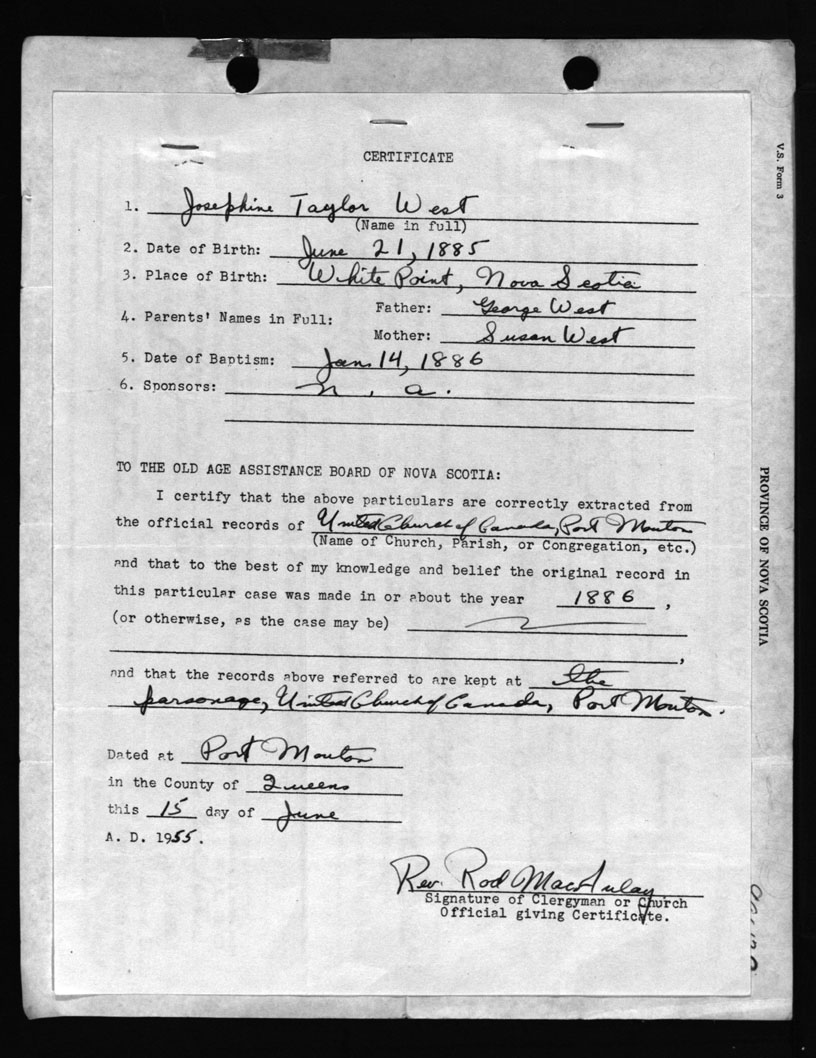 CERTIFICATE
1. Josephine Taylor West
(Name in full)
2. Date of Birth: June 21, 1885
3. Place of Birth: White Point, Nova Scotia
4. Parents' Names in Full: Father: George West
Mother: Susan West
5. Date of Baptism: Jan. 14, 1886
6. Sponsors: n. a.
TO THE OLD AGE ASSISTANCE BOARD OF NOVA SCOTIA:
I certify that the above particulars are correctly extracted from
the official records of United Church of Canada, Port Mouton
(Name of Church, Parish, or Congregation, etc.)
and that to the best of my knowledge and belief the original record in
this particular case was made in or about the year 1886,
(or otherwise, as the case may be)
,
and that the records above referred to are kept at the
parsonage, United Church of Canada, Port Mouton.
Dated at Port Mouton
in the County of Queens
this 15 day of June
A. D. 1955.
Rev. Rod MacAulay
Signature of Clergyman or Church
Official giving Certificate.
V.S. Form 3
PROVINCE OF NOVA SCOTIA